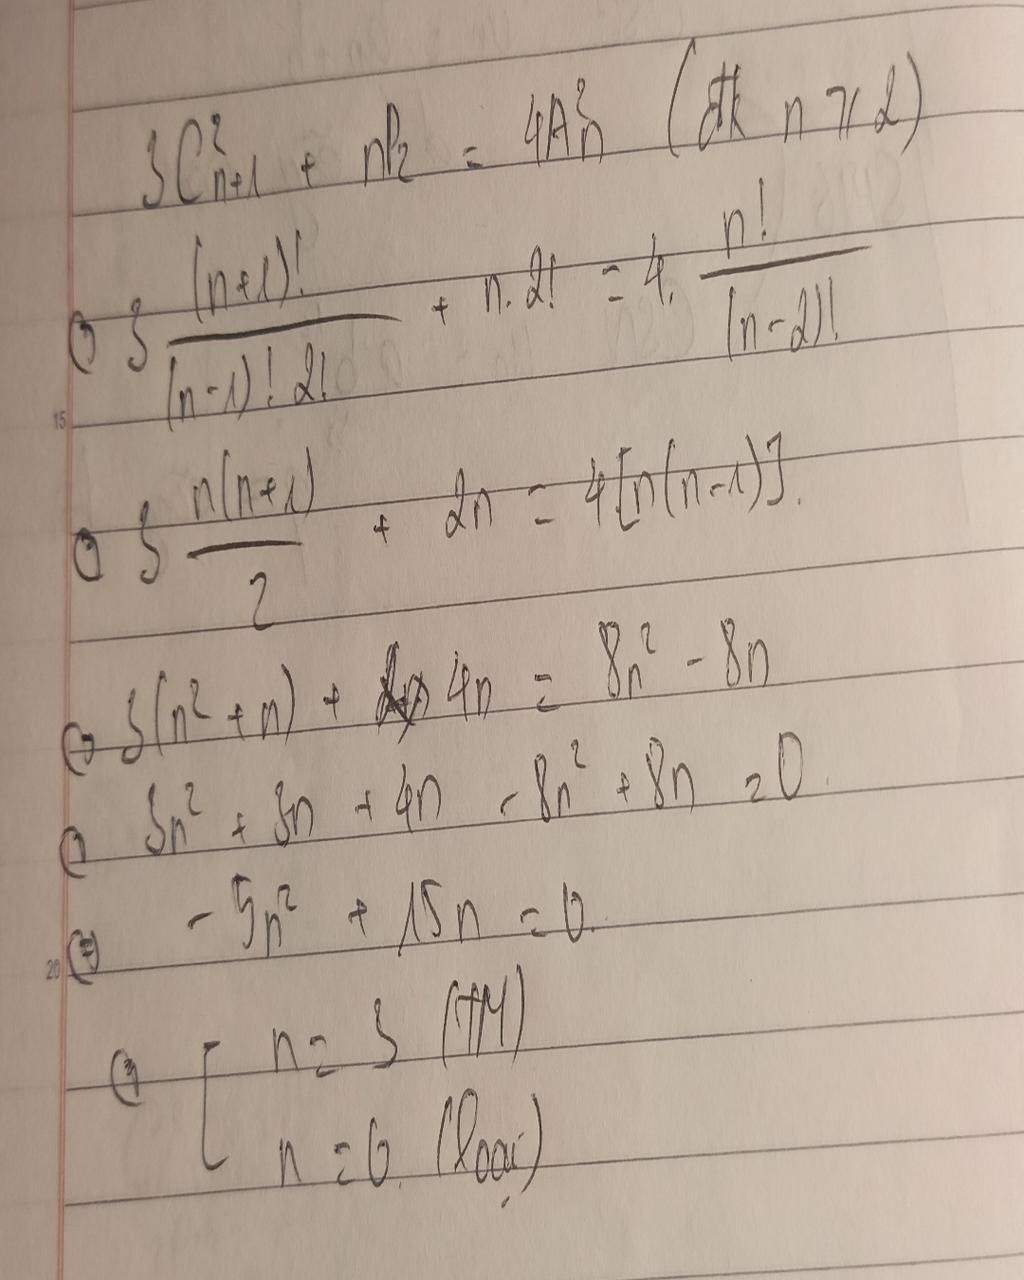 3C²ₙ₊₁ + nP₂ = 4A²ₙ (đk n ≥ 2)
⇔ 3 (n+1)!/((n-1)! 2!) + n.2! = 4. n!/(n-2)!
15
⇔ 3 n(n+1)/2 + 2n = 4[n(n-1)].
⇔ 3(n² + n) + 4n = 8n² - 8n
⇔ 3n² + 3n + 4n - 8n² + 8n = 0.
⇔ - 5n² + 15n = 0.
20
⇔ [ n = 3 (TM)
n = 0. (loại)